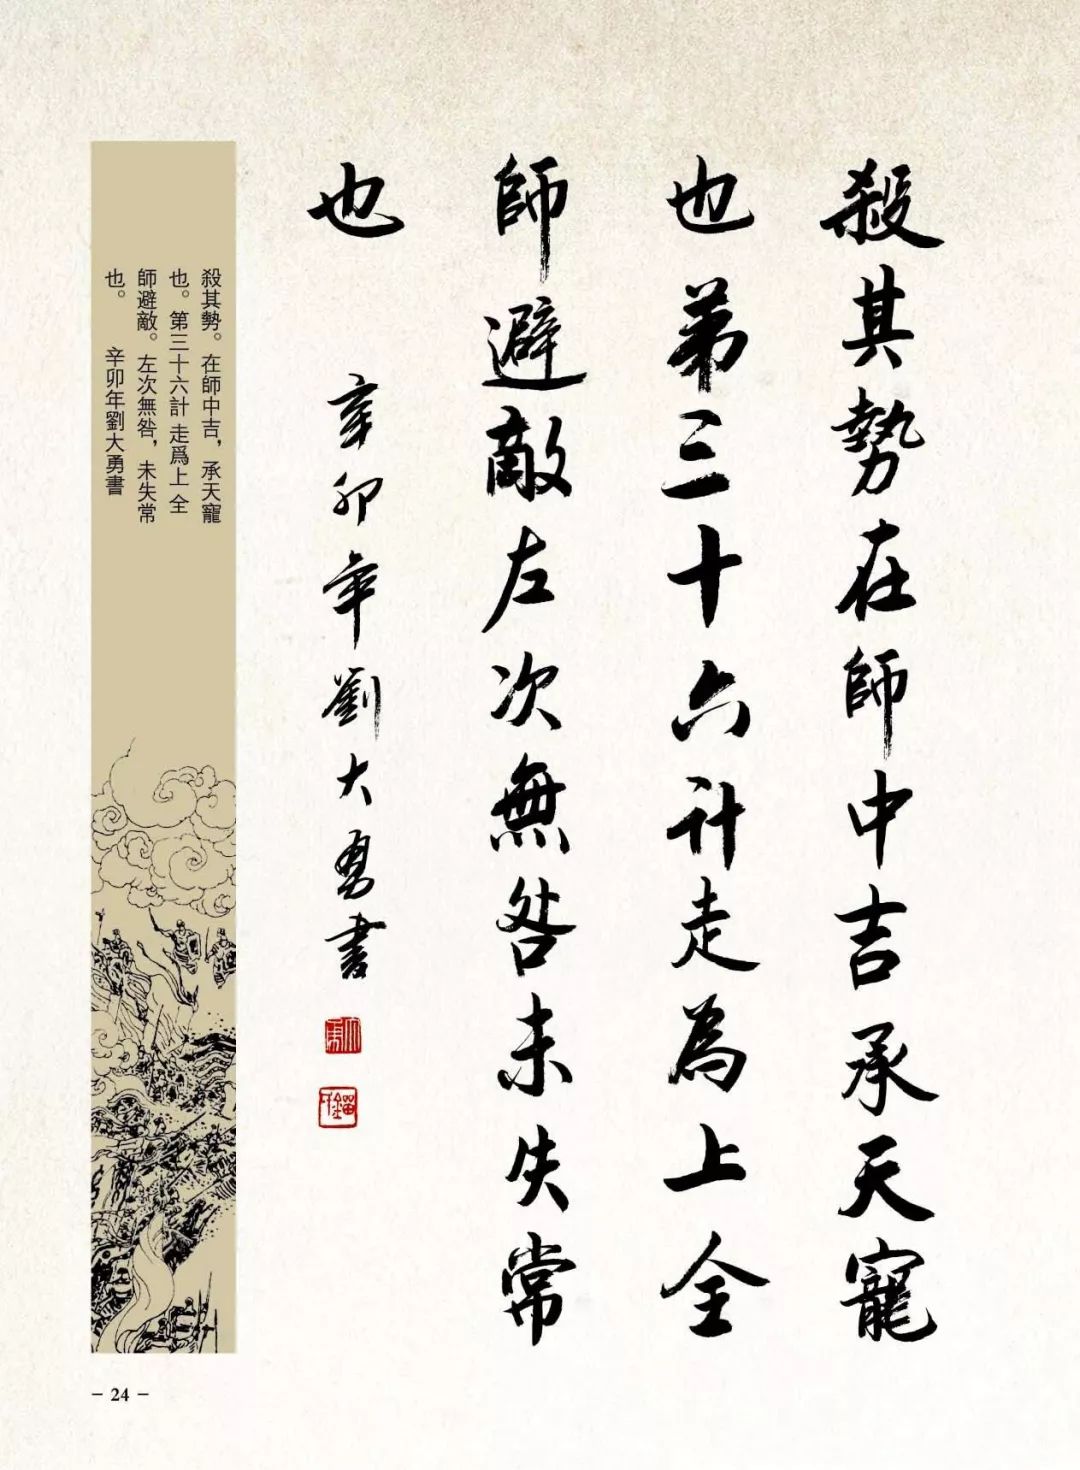 殺其勢在師中吉承天寵
也第三十六計走為上全
師避敵左次無咎未失常
也
辛卯年劉大勇書
殺其勢。在師中吉，承天寵
也。第三十六計 走爲上 全
師避敵。左次無咎，未失常
也。 辛卯年劉大勇書
- 24 -